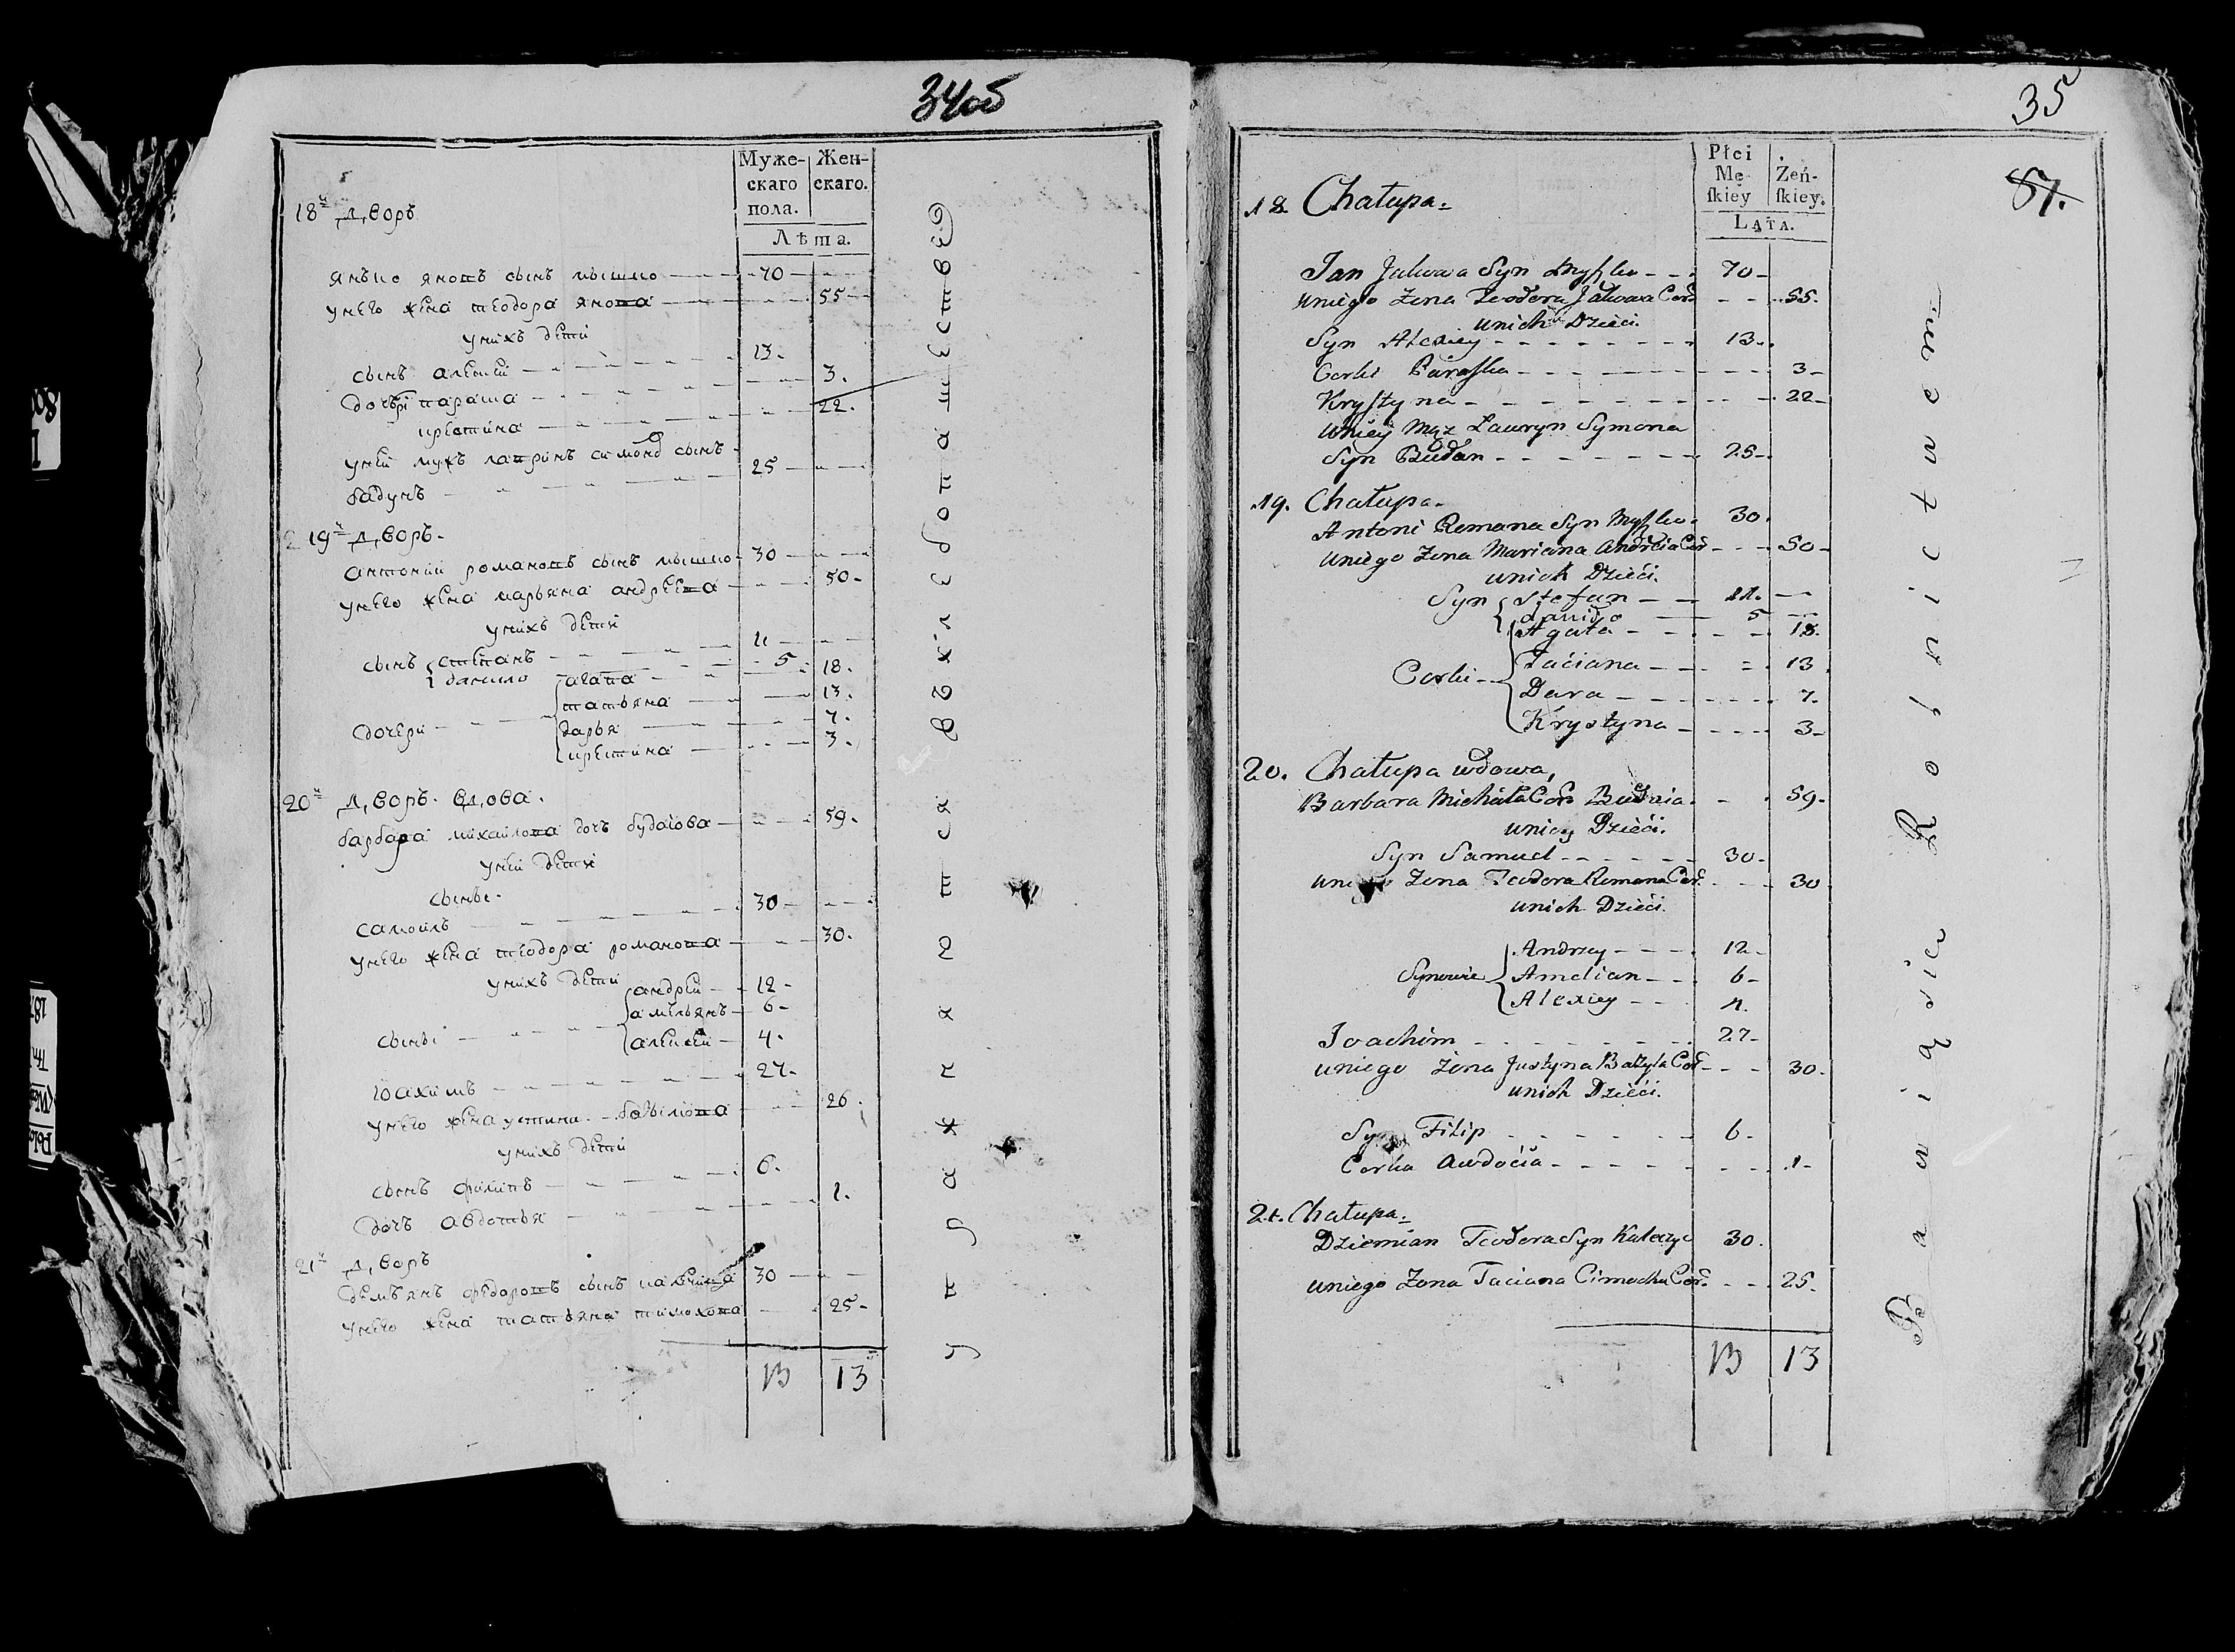 34об
Муже-
скаго
пола.
Жен-
скаго.
Лѣта.
18й дворъ
янъ яковъ сынъ мышко 70
у него жена теодора якова 55
у нихъ дети
сынъ алексей 13.
дочери параша 3.
крестина 22.
у ней мужъ лавринъ симонов сынъ
будунъ 25
19й дворъ.
антоний романовъ сынъ мышко 30
у него жена марьяна андреева 50.
у нихъ дети
сынъ степанъ 11
данило 5
дочери агата 18.
татьяна 13.
дарья 7.
крестина 3.
20й дворъ. вдова.
барбара михайлова дочь 59.
у ней дети
сынъ.
самойлъ 30
у него жена теодора романова 30.
у нихъ дети
сыны андрей 12
амельянъ 6
алексей 4.
иоахимъ 27.
у него жена устина 26.
у нихъ дети
сынъ филипъ 6.
дочь авдотья 1.
21й дворъ
демьянъ федоровъ сынъ 30
у него жена татьяна тимохова 25
13 13
упражняется в хлебопашестве
35
87.
Płci
Mę
ſkiey
Żeń-
ſkiey.
LATA.
18 Chałupa.
Jan Jakowa Syn Myſzko 70
u niego Żona Teodora Jakowa Cor 55.
u nich Dzieci.
Syn Alexiey 13.
Corki Paraſka 3
Kryſtyna 22
u niey Mąz Lawryn Symona
Syn Budan 25
19. Chałupa.
Antoni Romana Syn Myſzko 30.
u niego Żona Mariana Andreia Cor 50
u nich Dzieci.
Syn Stefan 11.
daniło 5
Corki Agata 18.
Taciana 13
Dara 7.
Krystyna 3
20. Chałupa wdowa,
Barbara Michała Cor 59.
u niey Dzieci.
Syn Samuel 30
u niego Żona Teodora Romana Cor. 30
u nich Dzieci.
Synowie Andrzey 12
Amelian 6
Alexiey 4.
Joachim 27
u niego Żona Justyna Cor 30.
u nich Dzieci.
Syn Filip 6
Corka Awdocia 1
21. Chałupa.
Dziemian Teodora Syn 30.
u niego Żona Taciana Cimocha Cor. 25.
13 13
Bawią sie Rolnictwem